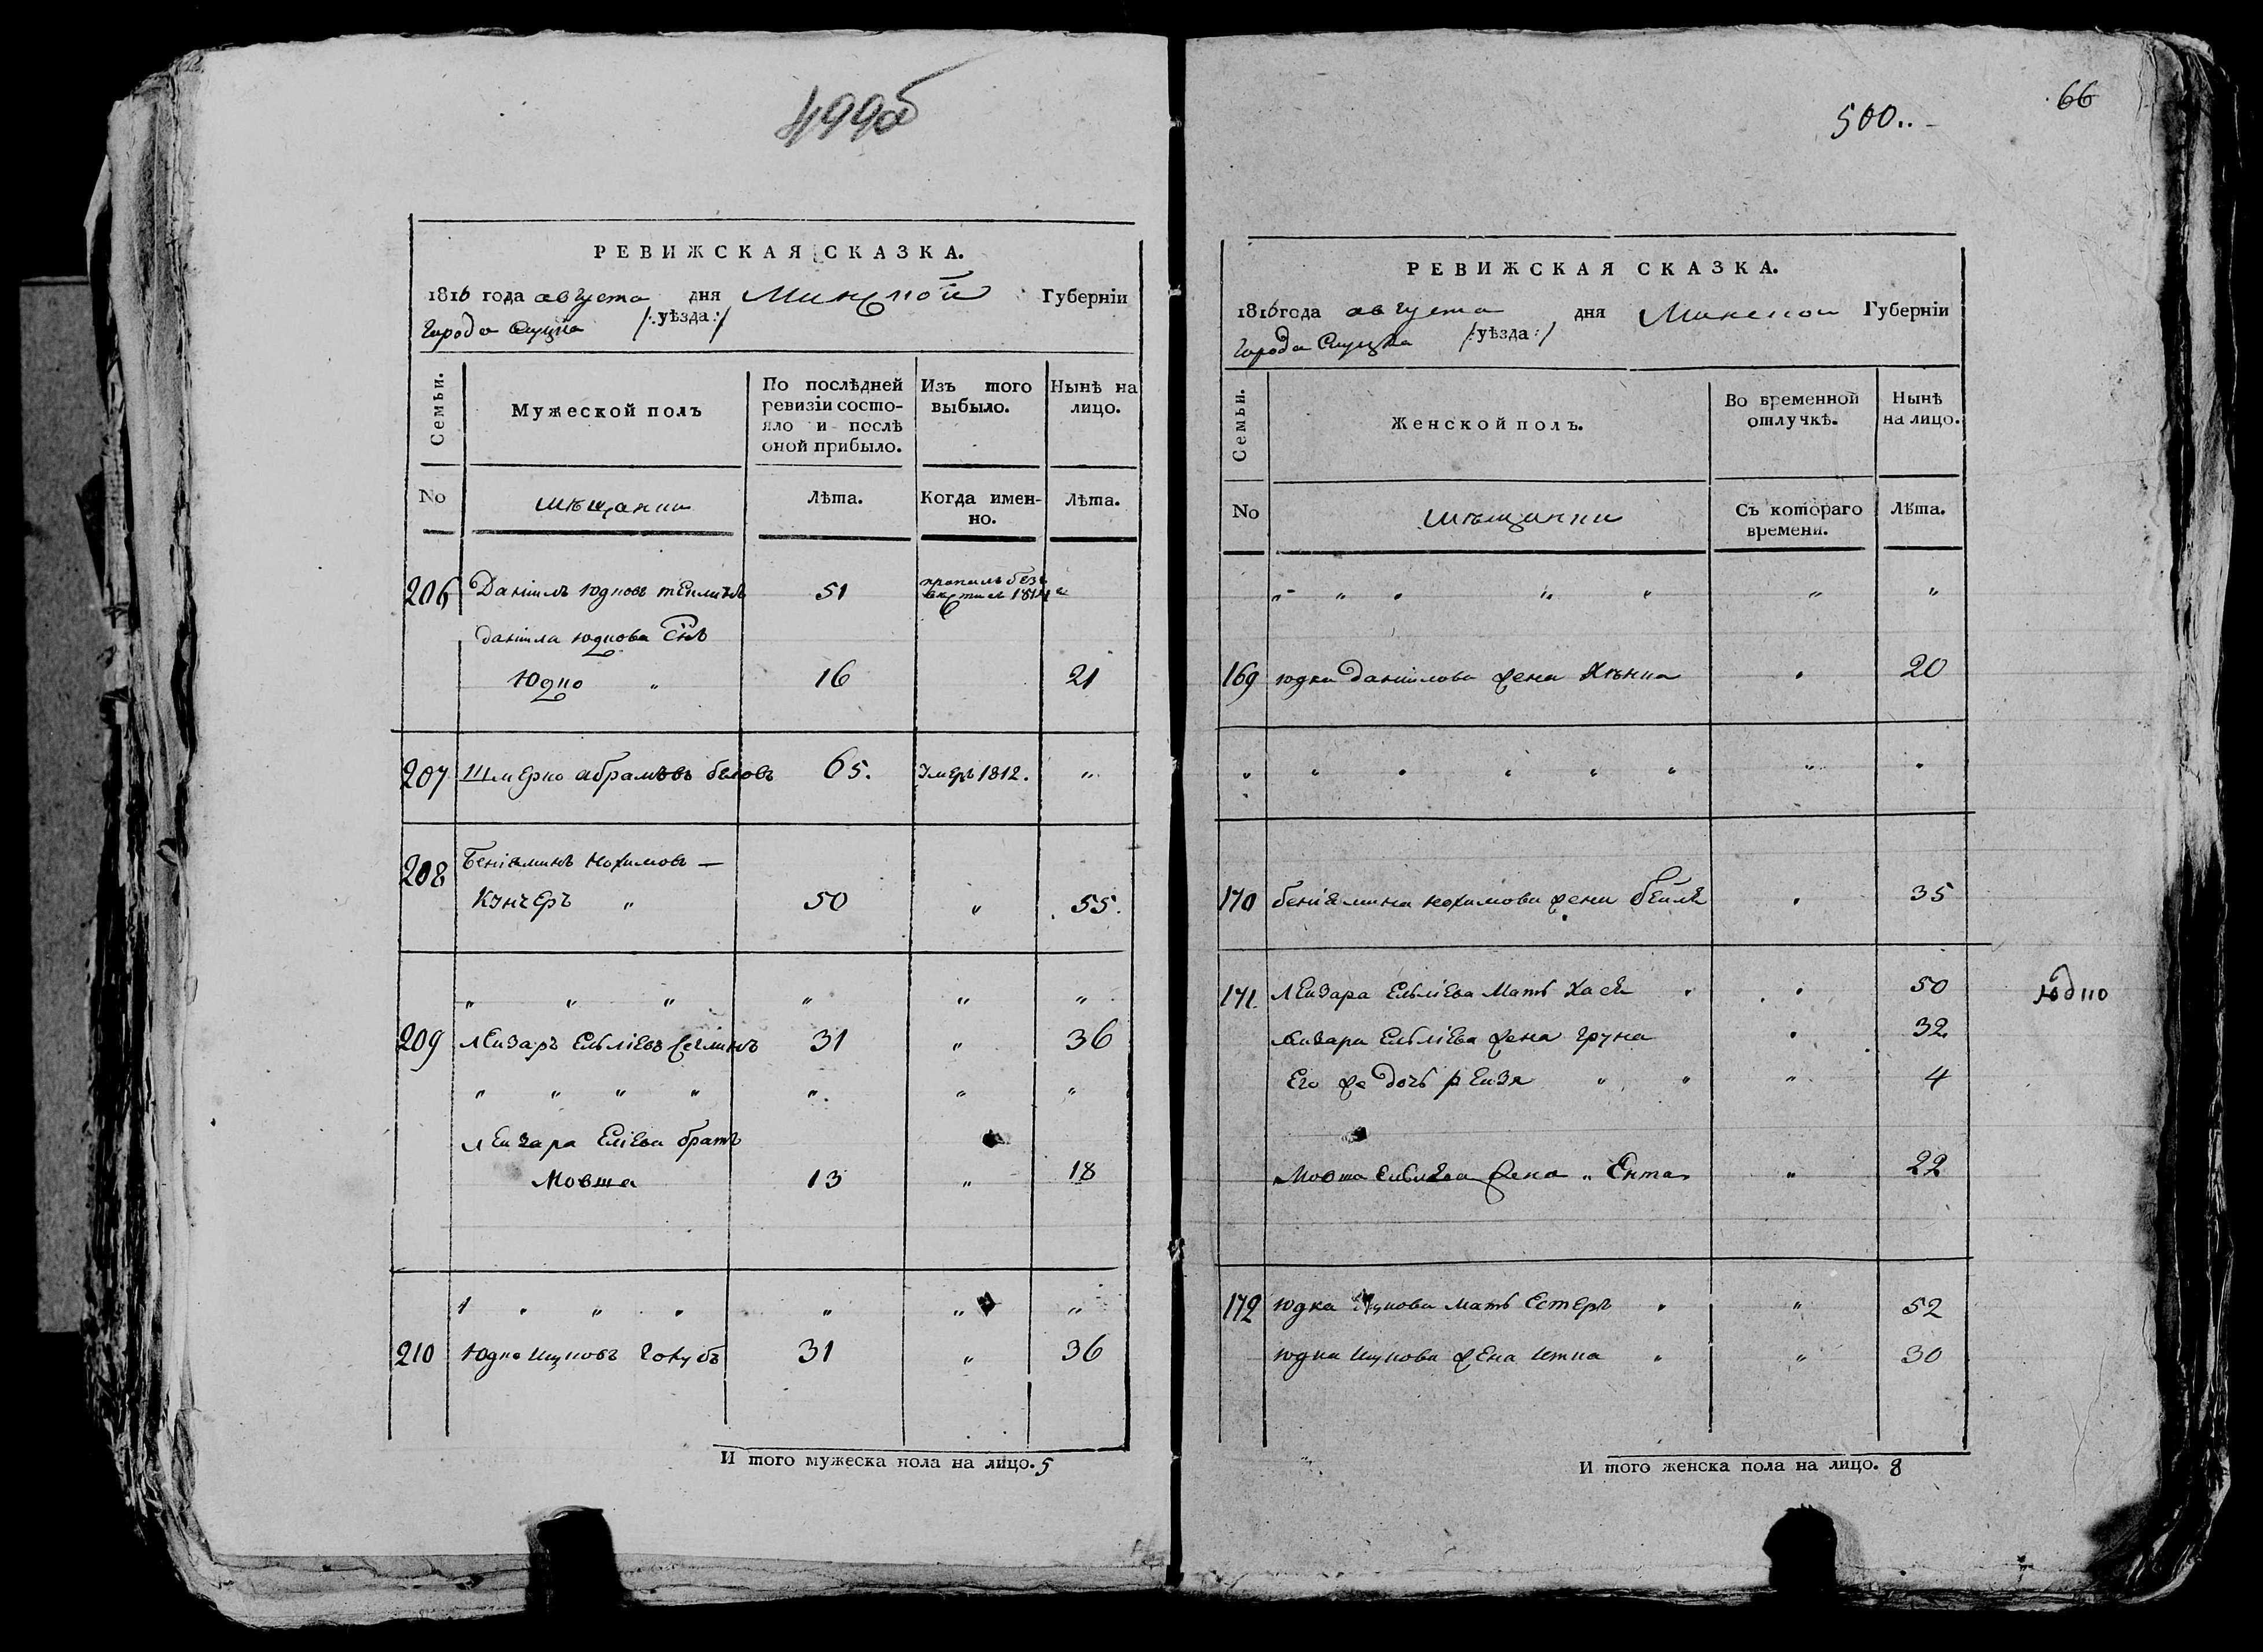 499об
РЕВИЖСКАЯ СКАЗКА.
1816 года августа дня Минской Губерніи
Города Слуцка /:уѣзда:/
Семьи.
Мужеской полъ
По послѣдней ревизіи состо-
яло и послѣ оной прибыло.
Изъ того выбыло.
Нынѣ на лицо.
No
мѣщанки
Лѣта.
Когда имен-
но.
Лѣта.
206 Даніилъ Юдковъ 51 1814 "
Даніила Юдкова Сынъ
Юдко " 16 21
207 Шмерко Абрамовъ беловъ 65. Умеръ 1812. "
208 Беніяминъ Нохимовъ —
Кунчеръ " 50 " 55.
" " " " " "
209 Лейзаръ Ельліевъ 31 " 36
" " " " " " "
Лейзара Еліева братъ
Мовша 13 " 18
" " " " " " "
210 Юдко Ицковъ Голубъ 31 " 36
И того мужеска пола на лицо. 5
66
500..
РЕВИЖСКАЯ СКАЗКА.
1816 года августа дня Минской Губерніи
Города Слуцка /:уѣзда:/
Семьи.
Женской полъ.
Во временной отлучкѣ.
Нынѣ на лицо.
No
мѣщанки
Съ котораго времени.
Лѣта.
" " " " " " "
169 Юдка Даніилова жена Хѣнка " 20
" " " " " " " "
170 беніямина Нохимова жена бейля " 35
171. Лейзара Ельліева Мать Хася " " 50
Юдко
Лейзара Ельліева жена Груна " 32
Его же дочь рейзя " " " 4
Мовша Ельліева жена " Ента " 22
172 Юдка Ицкова мать Естеръ " " 52
Юдка Ицкова жена Итка " " 30
И того женска пола на лицо. 8